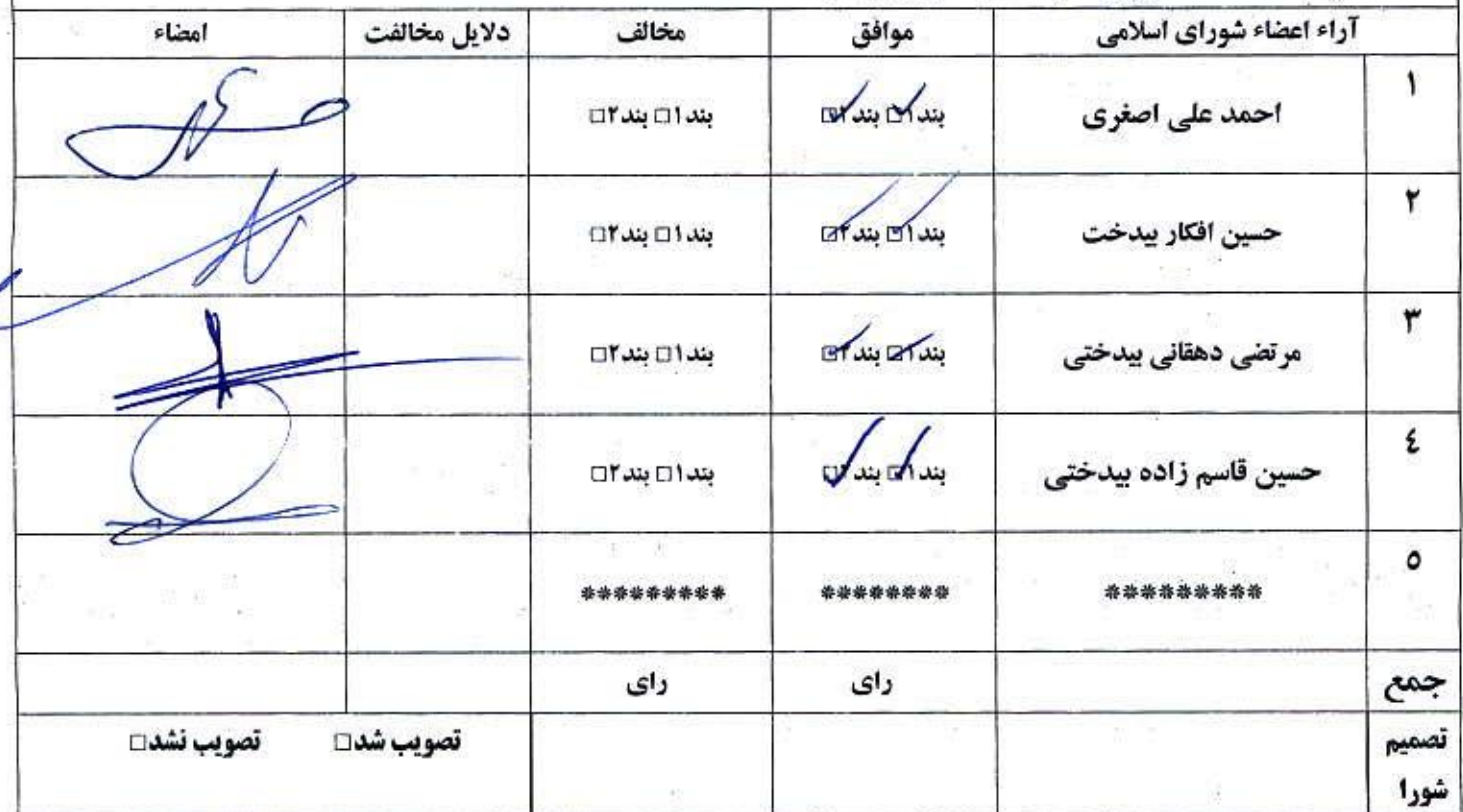 آراء اعضاء شورای اسلامی موافق مخالف دلایل مخالفت امضاء
۱ احمد علی اصغری بند۱□ بند۲□ بند۱□ بند۲□
۲ حسین افکار بیدخت بند۱□ بند۲□ بند۱□ بند۲□
۳ مرتضی دهقانی بیدختی بند۱□ بند۲□ بند۱□ بند۲□
٤ حسین قاسم زاده بیدختی بند۱□ بند۲□ بند۱□ بند۲□
۵ ********* ******** *********
جمع رای رای
تصمیم شورا تصویب شد□ تصویب نشد□